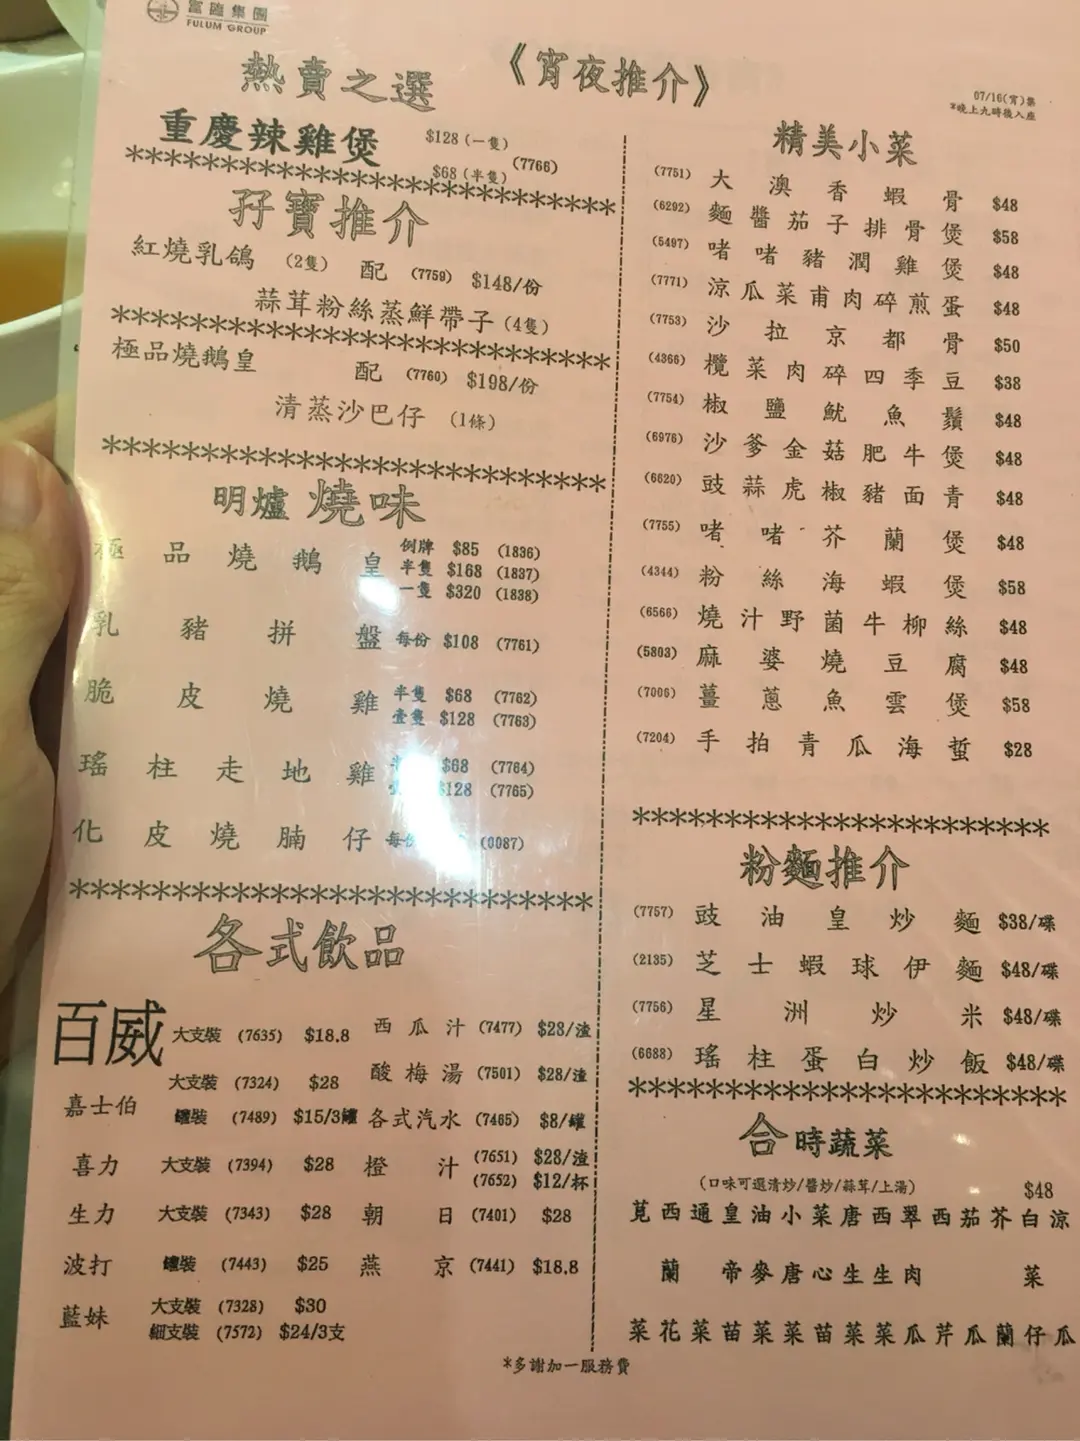 富臨集團
FULUM GROUP
《宵夜推介》
07/16(宵)集
*晚上九時後入座
熱賣之選
重慶辣雞煲 $128 (一隻)
$68 (半隻) (7766)
****************************
孖寶推介
紅燒乳鴿 (2隻) 配 (7759) $148/份
蒜茸粉絲蒸鮮帶子 (4隻)
****************************
極品燒鵝皇 配 (7760) $198/份
清蒸沙巴仔 (1條)
****************************
明爐燒味
極品燒鵝皇 例牌 $85 (1836)
半隻 $168 (1837)
一隻 $320 (1838)
乳豬拼盤 每份 $108 (7761)
脆皮燒雞 半隻 $68 (7762)
壹隻 $128 (7763)
瑤柱走地雞 $68 (7764)
$128 (7765)
化皮燒腩仔 每份 (0087)
****************************
各式飲品
百威 大支裝 (7635) $18.8
嘉士伯 大支裝 (7324) $28
罐裝 (7489) $15/3罐
喜力 大支裝 (7394) $28
生力 大支裝 (7343) $28
波打 罐裝 (7443) $25
藍妹 大支裝 (7328) $30
細支裝 (7572) $24/3支
西瓜汁 (7477) $28/渣
酸梅湯 (7501) $28/渣
各式汽水 (7465) $8/罐
橙汁 (7651) $28/渣
(7652) $12/杯
朝日 (7401) $28
燕京 (7441) $18.8
精美小菜
(7751) 大澳香蝦骨 $48
(6292) 麵醬茄子排骨煲 $58
(5497) 啫啫豬潤雞煲 $48
(7771) 涼瓜菜甫肉碎煎蛋 $48
(7753) 沙拉京都骨 $50
(4366) 欖菜肉碎四季豆 $38
(7754) 椒鹽魷魚鬚 $48
(6976) 沙爹金菇肥牛煲 $48
(6620) 豉蒜虎椒豬面青 $48
(7755) 啫啫芥蘭煲 $48
(4344) 粉絲海蝦煲 $58
(6566) 燒汁野菌牛柳絲 $48
(5803) 麻婆燒豆腐 $48
(7006) 薑蔥魚雲煲 $58
(7204) 手拍青瓜海蜇 $28
***********************
粉麵推介
(7757) 豉油皇炒麵 $38/碟
(2135) 芝士蝦球伊麵 $48/碟
(7756) 星洲炒米 $48/碟
(6688) 瑤柱蛋白炒飯 $48/碟
************************
合時蔬菜
(口味可選清炒/醬炒/蒜茸/上湯) $48
莧西通皇油小菜唐西翠西茄芥白涼
蘭 帝麥唐心生生肉 菜
菜花菜苗菜菜苗菜菜瓜芹瓜蘭仔瓜
*多謝加一服務費